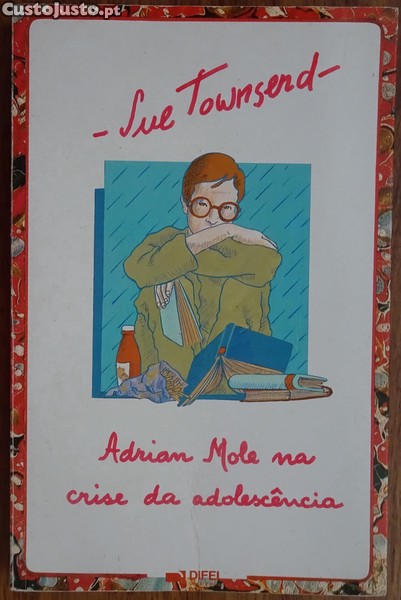 CustoJusto.pt
- Sue Townsend -
Adrian Mole na
crise da adolescência
DIFEL